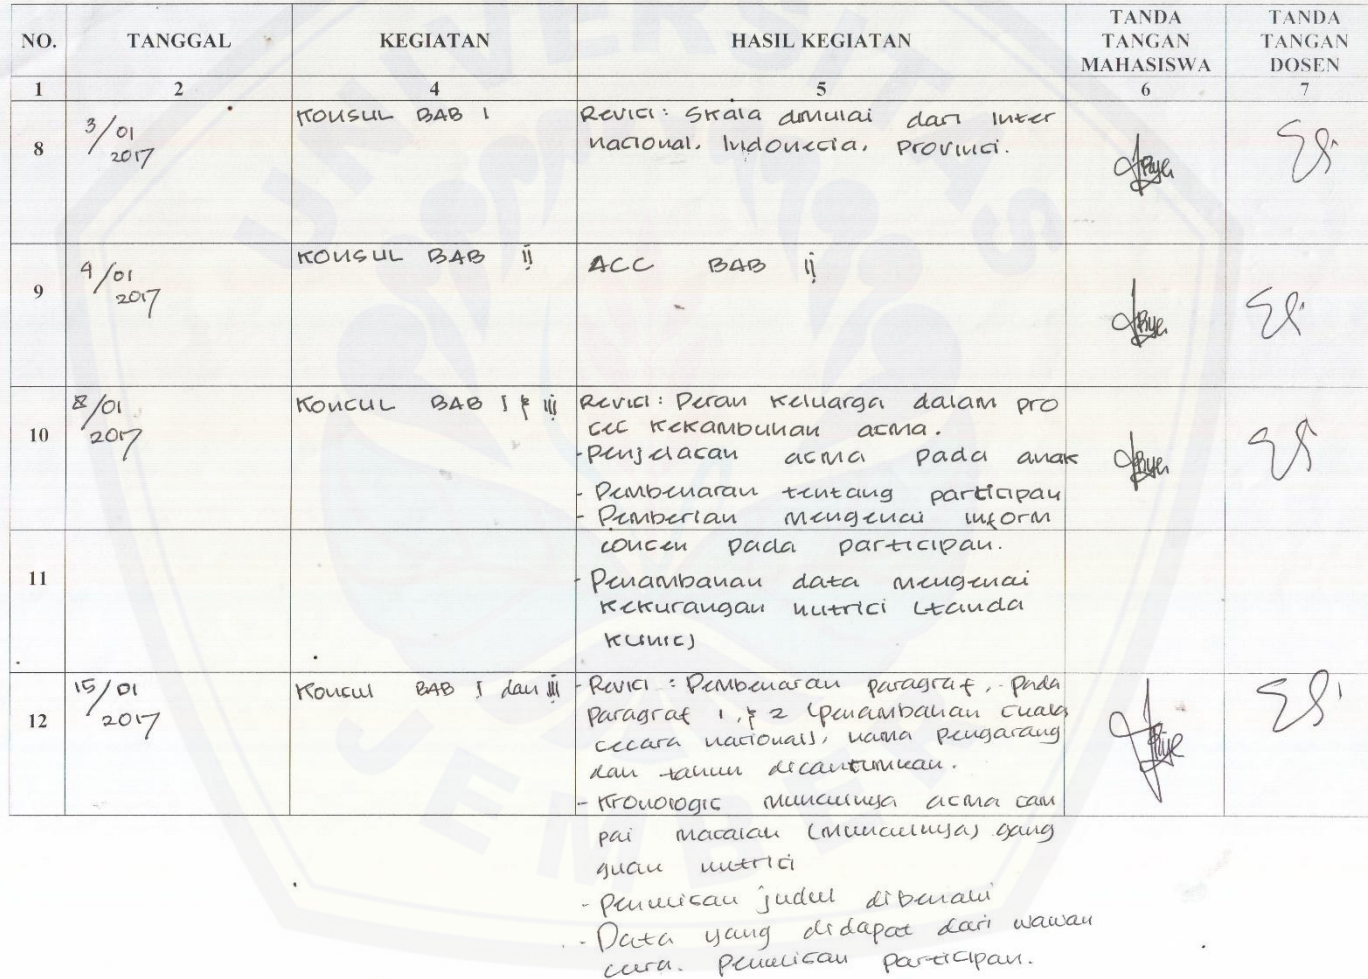 NO. TANGGAL KEGIATAN HASIL KEGIATAN TANDA TANGAN MAHASISWA TANDA TANGAN DOSEN
1 2 4 5 6 7
8 3/01 2017 KONSUL BAB I Revisi: Skala dimulai dari Inter
nasional, Indonesia, Provinsi.
9 4/01 2017 KONSUL BAB II ACC BAB II
10 8/01 2017 KONSUL BAB I & III Revisi: Peran keluarga dalam pro
ses kekambuhan asma.
- Penjelasan asma pada anak
- Pembenaran tentang partisipan
- Pemberian mengenai inform
consen pada partisipan.
11
- Penambahan data mengenai
kekurangan nutrisi (tanda
klinis)
12 15/01 2017 Konsul BAB I dan III - Revisi : Pembenaran paragraf, pada
paragraf 1, & 2 (penambahan skala
secara nasional), nama pengarang
dan tahun dicantumkan.
- Kronologis munculnya asma sam
pai masalah (munculnya) gang
guan nutrisi
- Penulisan judul dibenahi
- Data yang didapat dari wawan
cara. Penulisan partisipan.
UNIVERSITAS
JEMBER